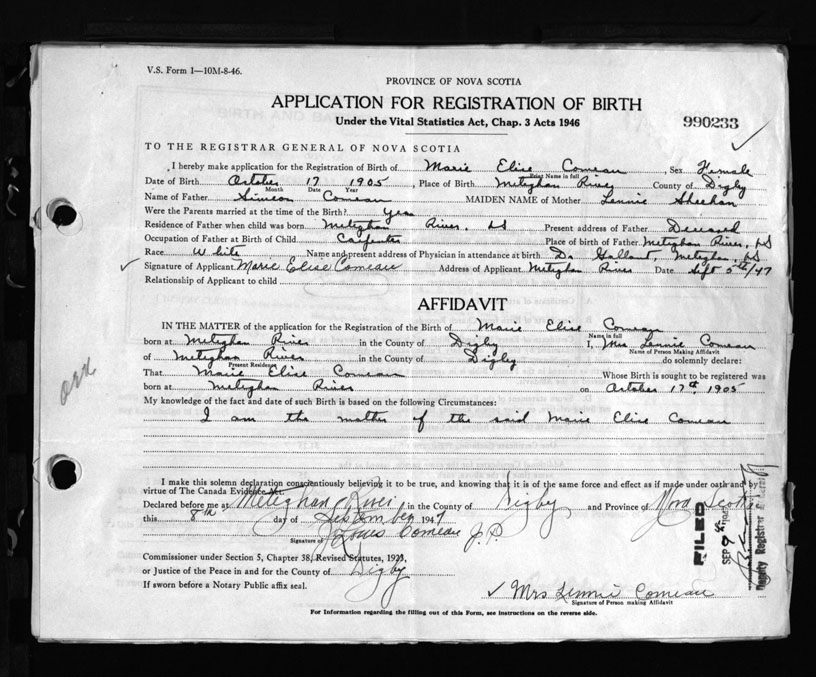 V.S. Form 1—10M-8-46.
PROVINCE OF NOVA SCOTIA
APPLICATION FOR REGISTRATION OF BIRTH
Under the Vital Statistics Act, Chap. 3 Acts 1946
990233
TO THE REGISTRAR GENERAL OF NOVA SCOTIA
I hereby make application for the Registration of Birth of Marie Elise Comeau, Sex Female
Print Name in full
Date of Birth October 17 1905, Place of Birth Meteghan River County of Digby
Month Date Year
Name of Father Simeon Comeau MAIDEN NAME of Mother Lennie Sheehan
Were the Parents married at the time of Birth? Yes
Residence of Father when child was born Meteghan River. NS Present address of Father Deceased
Occupation of Father at Birth of Child Carpenter Place of birth of Father Meteghan River, NS
Race White Name and present address of Physician in attendance at birth Dr Gallant, Meteghan, NS
Signature of Applicant Marie Elise Comeau Address of Applicant Meteghan River Date Sept 5th/47
Relationship of Applicant to child
AFFIDAVIT
IN THE MATTER of the application for the Registration of the Birth of Marie Elise Comeau
Name in full
born at Meteghan River in the County of Digby I, Mrs Lennie Comeau
Name of Person Making Affidavit
of Meteghan River in the County of Digby do solemnly declare:
Present Residence
That Marie Elise Comeau Whose Birth is sought to be registered was
born at Meteghan River on October 17th, 1905
My knowledge of the fact and date of such Birth is based on the following Circumstances:
I am the mother of the said Marie Elise Comeau
I make this solemn declaration conscientiously believing it to be true, and knowing that it is of the same force and effect as if made under oath and by
virtue of The Canada Evidence Act.
Declared before me at Meteghan River in the County of Digby and Province of Nova Scotia
this 8th day of September 1947
Louis Comeau J.P.
Signature of
Commissioner under Section 5, Chapter 38, Revised Statutes, 1923,
or Justice of the Peace in and for the County of Digby
If sworn before a Notary Public affix seal.
Mrs Lennie Comeau
Signature of Person making Affidavit
FILED
SEP 9 1947
Deputy Registrar General
For Information regarding the filling out of this Form, see instructions on the reverse side.